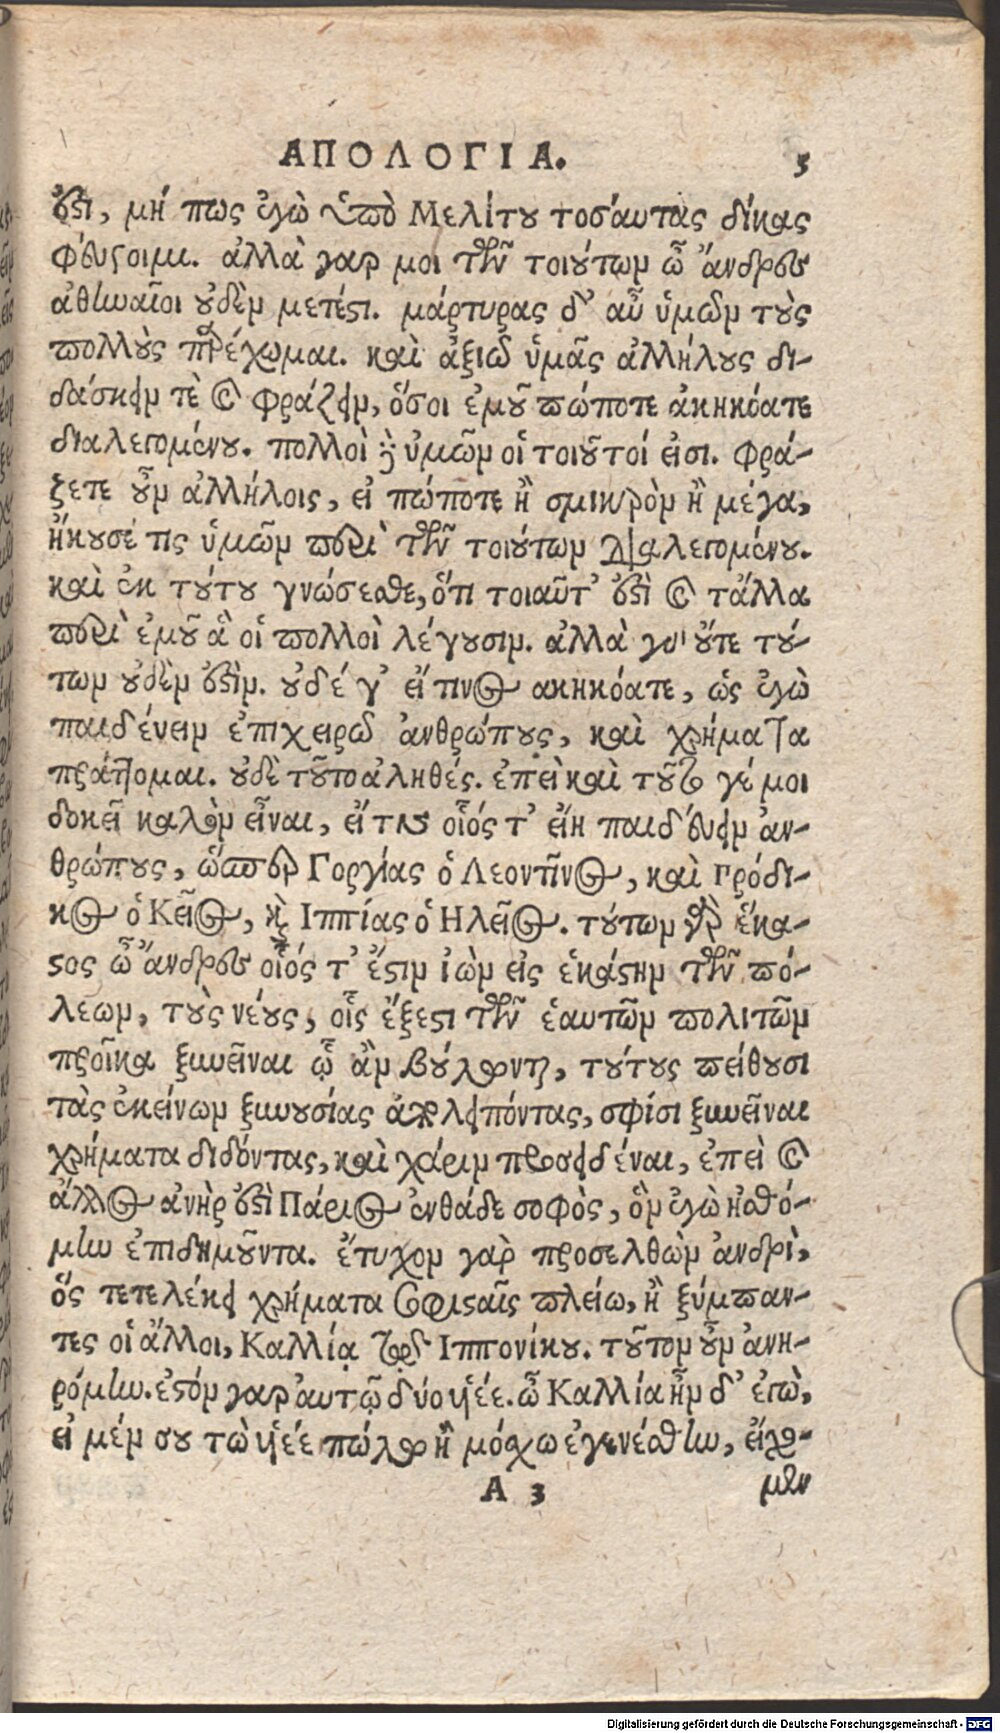 ΑΠΟΛΟΓΙΑ. 5
ἐστι, μή πως ἐγὼ ὑπὸ Μελίτου τοσάυτας δίκας
φέυγοιμι. ἀλλὰ γαρ μοι τῶν τοιούτων ὦ ἄνδρες
ἀθηναῖοι οὐδὲν μετέστι. μάρτυρας δ᾽ αὖ ὑμῶν τοὺς
πολλοὺς παρέχομαι. καὶ ἀξιῶ ὑμᾶς ἀλλήλους δι-
δάσκειν τὲ καὶ φράζειν, ὅσοι ἐμοῦ πώποτε ἀκηκόατε
διαλεγομένου. πολλοὶ δὲ ὑμῶν οἱ τοιοῦτοί εἰσι. φρά-
ζετε οὖν ἀλλήλοις, εἰ πώποτε ἢ σμικρὸν ἢ μέγα,
ἤκουσέ τις ὑμῶν περὶ τῶν τοιούτων διαλεγομένου.
καὶ ἐκ τούτου γνώσεσθε, ὅτι τοιαῦτ᾽ ἐστὶ καὶ τἄλλα
περὶ ἐμοῦ ἃ οἱ πολλοὶ λέγουσιν. ἀλλὰ γὰρ οὔτε τού-
των οὐδὲν ἐστὶν. οὐδέ γ᾽ εἴ τινος ακηκόατε, ὡς ἐγὼ
παιδέυειν ἐπιχειρῶ ἀνθρώπους, καὶ χρήματα
πράττομαι. οὐδὲ τοῦτο ἀληθές. ἐπεὶ καὶ τοῦτο γέ μοι
δοκεῖ καλὸν εἶναι, εἴ τις οἷός τ᾽ εἴη παιδέυειν ἀν-
θρώπους, ὥσπερ Γοργίας ὁ Λεοντῖνος, καὶ Πρόδι-
κος ὁ Κεῖος, καὶ Ιππίας ὁ Ηλεῖος. τούτων γὰρ ἕκα-
στος ὦ ἄνδρες οἷός τ᾽ ἔστιν ἰὼν εἰς ἑκάστην τῶν πό-
λεων, τοὺς νέους, οἷς ἔξεστι τῶν ἑαυτῶν πολιτῶν
προῖκα ξυνεῖναι ᾧ ἂν βούλωνται, τούτους πείθουσι
τὰς ἐκείνων ξυνουσίας ἀπολειπόντας, σφίσι ξυνεῖναι
χρήματα διδόντας, καὶ χάριν προσειδέναι, ἐπεὶ καὶ
ἄλλος ἀνὴρ ἐστὶ Πάριος ἐνθάδε σοφὸς, ὃν ἐγὼ ἠσθό-
μην ἐπιδημοῦντα. ἔτυχον γαρ προσελθὼν ἀνδρὶ,
ὅς τετελέκει χρήματα σοφισταῖς πλείω, ἢ ξύμπαν-
τες οἱ ἄλλοι, Καλλίᾳ τῷ Ιππονίκου. τοῦτον οὖν ἀνη-
ρόμην. ἐστόν γαρ αὐτῷ δύο ὑιέε. ὦ Καλλία ἦν δ᾽ ἐγὼ,
εἰ μέν σου τὼ ὑιέε πώλω ἢ μόσχω ἐγενέσθην, εἴχο-
Α 3 μεν